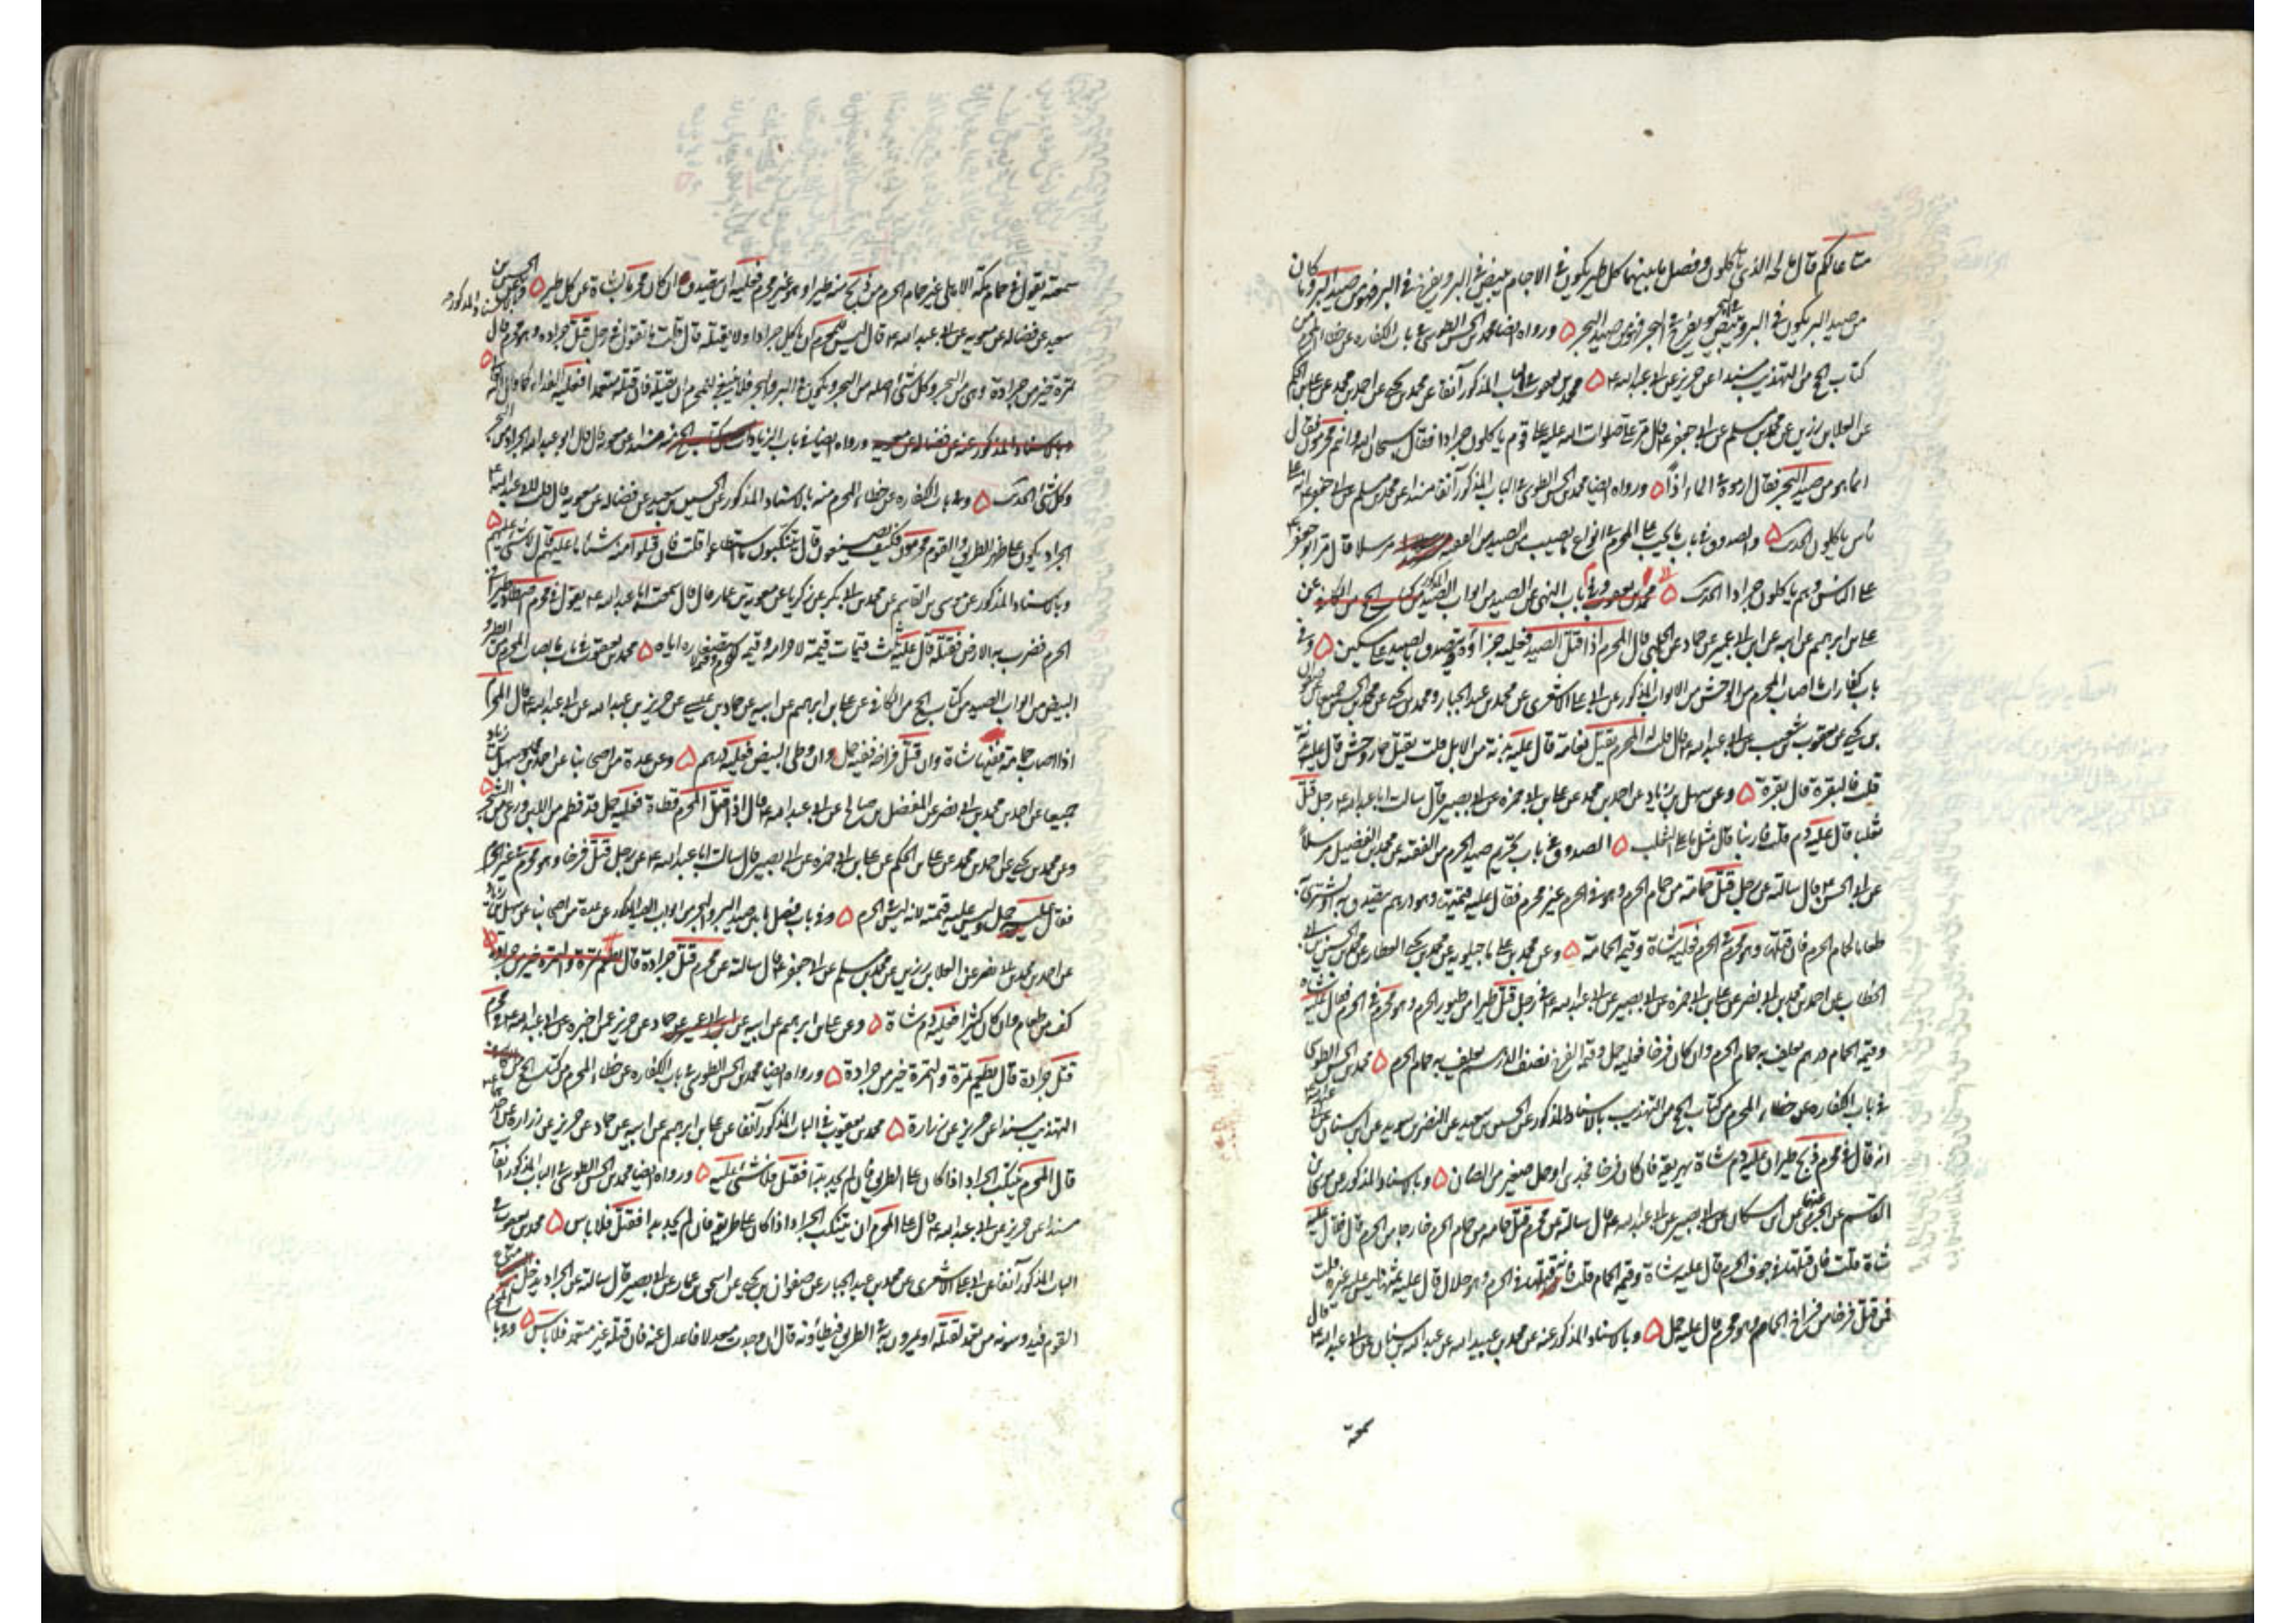 متاعا لكم قال مالحه الذي تأكلون وفصل ما بينهما كل طير يكون في الاجام يبيض في البر ويفرخ في البر فهو من صيد البر وما كان
من صيد البر يكون في البر ويبيض في البحر ويفرخ في البحر فهو من صيد البحر ورواه ايضا محمد بن الحسن الطوسي في باب الكفاره عن خطا المحرم من
كتاب الحج من التهذيب مسندا عن حريز عن ابي عبد الله ع محمد بن يعقوب في الباب المذكور آنفا عن محمد بن يحيى عن احمد بن محمد عن علي بن الحكم
عن العلا بن رزين عن محمد بن مسلم عن ابي جعفر ع قال مر علي صلوات الله عليه على قوم ياكلون جرادا فقال سبحان الله وانتم محرمون فقالوا
انما هو من صيد البحر فقال ارموه في الماء اذاً ورواه ايضا محمد بن الحسن الطوسي في الباب المذكور آنفا مسندا عن محمد بن مسلم عن ابي جعفر ع انه مر على
ناس ياكلون الحديث والصدوق في باب ما يجب على المحرم في انواع ما يصيب من الصيد من الفقيه مرسلا قال مر ابو جعفر ع
على الناس وهم ياكلون جرادا الحديث محمد بن يعقوب في باب النهي عن الصيد من ابواب الصيد المذكور من كتاب الحج من الكافي عن
علي بن ابرهيم عن ابيه عن ابن ابي عمير عن حماد عن الحلبي قال المحرم اذا قتل الصيد فعليه جزاؤه ويتصدق بالصيد على مسكين وفي
باب كفارات ما اصاب المحرم من الوحش من الابواب المذكور عن ابي علي الاشعري عن محمد بن عبد الجبار ومحمد بن يحيى عن محمد بن الحسين عن صفوان
بن يحيى عن يعقوب بن شعيب عن ابي عبد الله ع قال قلت له المحرم يقتل نعامة قال عليه بدنة من الابل قلت يقتل حمار وحش قال عليه بدنة
قلت فالبقرة قال بقرة وعن سهل بن زياد عن احمد بن محمد عن علي بن ابي حمزه عن ابي بصير قال سالت ابا عبد الله ع عن رجل قتل
ثعلبا قال عليه دم قلت فارنبا قال مثل ما في الثعلب الصدوق في باب تحريم صيد الحرم من الفقيه عن محمد بن الفضيل مرسلا
عن ابي الحسن ع قال سالته عن رجل قتل حمامة من حمام الحرم وهو في الحرم غير محرم فقال عليه قيمتها وهو درهم يتصدق به او يشتري به
طعاما لحمام الحرم فان قتلها وهو محرم في الحرم فعليه شاة وقيمة الحمامة وعن محمد بن علي ماجيلويه عن محمد بن يحيى العطار عن محمد بن الحسين بن ابي
الخطاب عن احمد بن محمد بن ابي نصر عن علي بن ابي حمزه عن ابي بصير عن ابي عبد الله ع في رجل قتل طيرا من طيور الحرم وهو محرم في الحرم فقال عليه شاه
وقيمة الحمام درهم يعلف به حمام الحرم وان كان فرخا فعليه حمل وقيمة الفرخ نصف الدرهم يعلف به حمام الحرم محمد بن الحسن الطوسي
في باب الكفاره عن خطاء المحرم من كتاب الحج من التهذيب بالاسناد المذكور عن الحسين بن سعيد عن النضر بن سويد عن ابن سنان عن ابي عبد الله ع
انه قال في محرم ذبح طيرا ان عليه دم شاة يهريقه فان كان فرخا فجدي او حمل صغير من الضان وبالاسناد المذكور عن موسى بن
القاسم عن الجرمي عنهما عن ابن مسكان عن ابي بصير عن ابي عبد الله ع قال سالته عن محرم قتل حمامه من حمام الحرم خارجا من الحرم قال فقال عليه
شاة قلت فان قتلها في جوف الحرم قال عليه شاة وقيمة الحمام قلت فان قتلها في الحرم وهو حلال قال عليه ثمنها ليس عليه غيره قلت
فمن قتل فرخا من فراخ الحمام وهو محرم قال عليه حمل وبالاسناد المذكور عنه عن محمد بن عبيد الله عن عبد الله بن سنان عن ابي عبد الله ع قال
سمعته
سمعته يقول في حمام مكة الاهلي غير حمام الحرم من ذبح منه طيرا وهو غير محرم فعليه ان يتصدق وان كان محرما بشاة عن كل طير وبالاسناد المذكور عن الحسين بن
سعيد عن فضاله عن معويه عن ابي عبد الله ع قال ليس للمحرم ان ياكل جرادا ولا يقتله قال قلت ما تقول في رجل قتل جراده وهو محرم قال
تمرة خير من جرادة وهي من البحر وكل شئ اصله من البحر ويكون في البر والبحر فلا ينبغي للمحرم ان يقتله فان قتله متعمدا فعليه الفداء كما قال الله
وبالاسناد المذكور عنه عن فضاله عن معويه ورواه ايضا في باب الزيادات من كتاب الحج منه مسندا عن معويه قال قال ابو عبد الله الجراد من البحر
وكل شئ الحديث وفي باب الكفاره عن خطاء المحرم منه بالاسناد المذكور عن الحسين بن سعيد عن فضاله عن معويه قال قلت لابي عبد الله ع
الجراد يكون على ظهر الطريق والقوم محرمون فكيف يصنعون قال يتنكبونه ما استطاعوا قلت فان قتلوا منه شيئا ما عليهم قال لا شئ عليهم
وبالاسناد المذكور عن موسى بن القاسم عن محمد بن ابي بكر عن زكريا عن معويه بن عمار قال قال سمعت ابا عبد الله ع يقول في محرم اصطاد طيرا في
الحرم فضرب به الارض فقتله قال عليه ثلث قيمات قيمة لاحرامه وقيمة للحرم وقيمة لاستصغاره اياه محمد بن يعقوب في باب ما يصاب المحرم من الطير و
البيض من ابواب الصيد من كتاب الحج من الكافي عن علي بن ابرهيم عن ابيه عن حماد بن عيسى عن حريز بن عبد الله عن ابي عبد الله ع قال المحرم
اذا اصاب حمامة ففيها شاة وان قتل فراخه ففيه حمل وان وطي البيض فعليه درهم وعن عدة من اصحابنا عن احمد بن محمد وسهل بن زياد
جميعا عن احمد بن محمد بن ابي نصر عن المفضل بن صالح عن ابي عبد الله ع قال اذا قتل المحرم قطاة فعليه حمل قد فطم من اللبن ورعى من الشجر
وعن محمد بن يحيى عن احمد بن محمد عن علي بن الحكم عن علي بن ابي حمزه عن ابي بصير قال سالت ابا عبد الله ع عن رجل قتل فرخا وهو محرم في غير الحرم
فقال عليه حمل وليس عليه قيمته لانه ليس في الحرم وفي باب فصل ما بين صيد البر والبحر من ابواب الصيد المذكور عن عدة من اصحابنا عن سهل بن زياد
عن احمد بن محمد بن ابي نصر عن العلا بن رزين عن محمد بن مسلم عن ابي جعفر ع قال سالته عن محرم قتل جرادة قال يطعم تمرة والتمره خير من جرادة
كف من طعام وان كان كثيرا فعليه دم شاة وعن علي بن ابرهيم عن ابيه عن ابن ابي عمير عن حماد عن حريز عن من اخبره عن ابي عبد الله ع في محرم
قتل جرادة قال يطعم تمرة والتمرة خير من جرادة ورواه ايضا محمد بن الحسن الطوسي في باب الكفاره عن خطاء المحرم من كتاب الحج من
التهذيب مسندا عن حريز عن زرارة محمد بن يعقوب في الباب المذكور آنفا عن علي بن ابرهيم عن ابيه عن حماد عن حريز عن زراره عن احدهما ع
قال المحرم يتنكب الجراد اذا كان على الطريق فان لم يجد بدا فقتل فلا شئ عليه ورواه ايضا محمد بن الحسن الطوسي في الباب المذكور آنفا
مسندا عن حريز عن ابي عبد الله ع قال على المحرم ان يتنكب الجراد اذا كان على طريقه فان لم يجد بدا فقتل فلا باس محمد بن يعقوب في
الباب المذكور آنفا عن ابي علي الاشعري عن محمد بن عبد الجبار عن صفوان بن يحيى عن اسحق بن عمار عن ابي بصير قال سالته عن الجراد يدخل متاع
القوم فيدوسونه من غير تعمد لقتله او يمرون به في الطريق فيطأونه قال ان وجدت معدلا فاعدل عنه فان قتلته غير متعمد فلا باس وفي باب